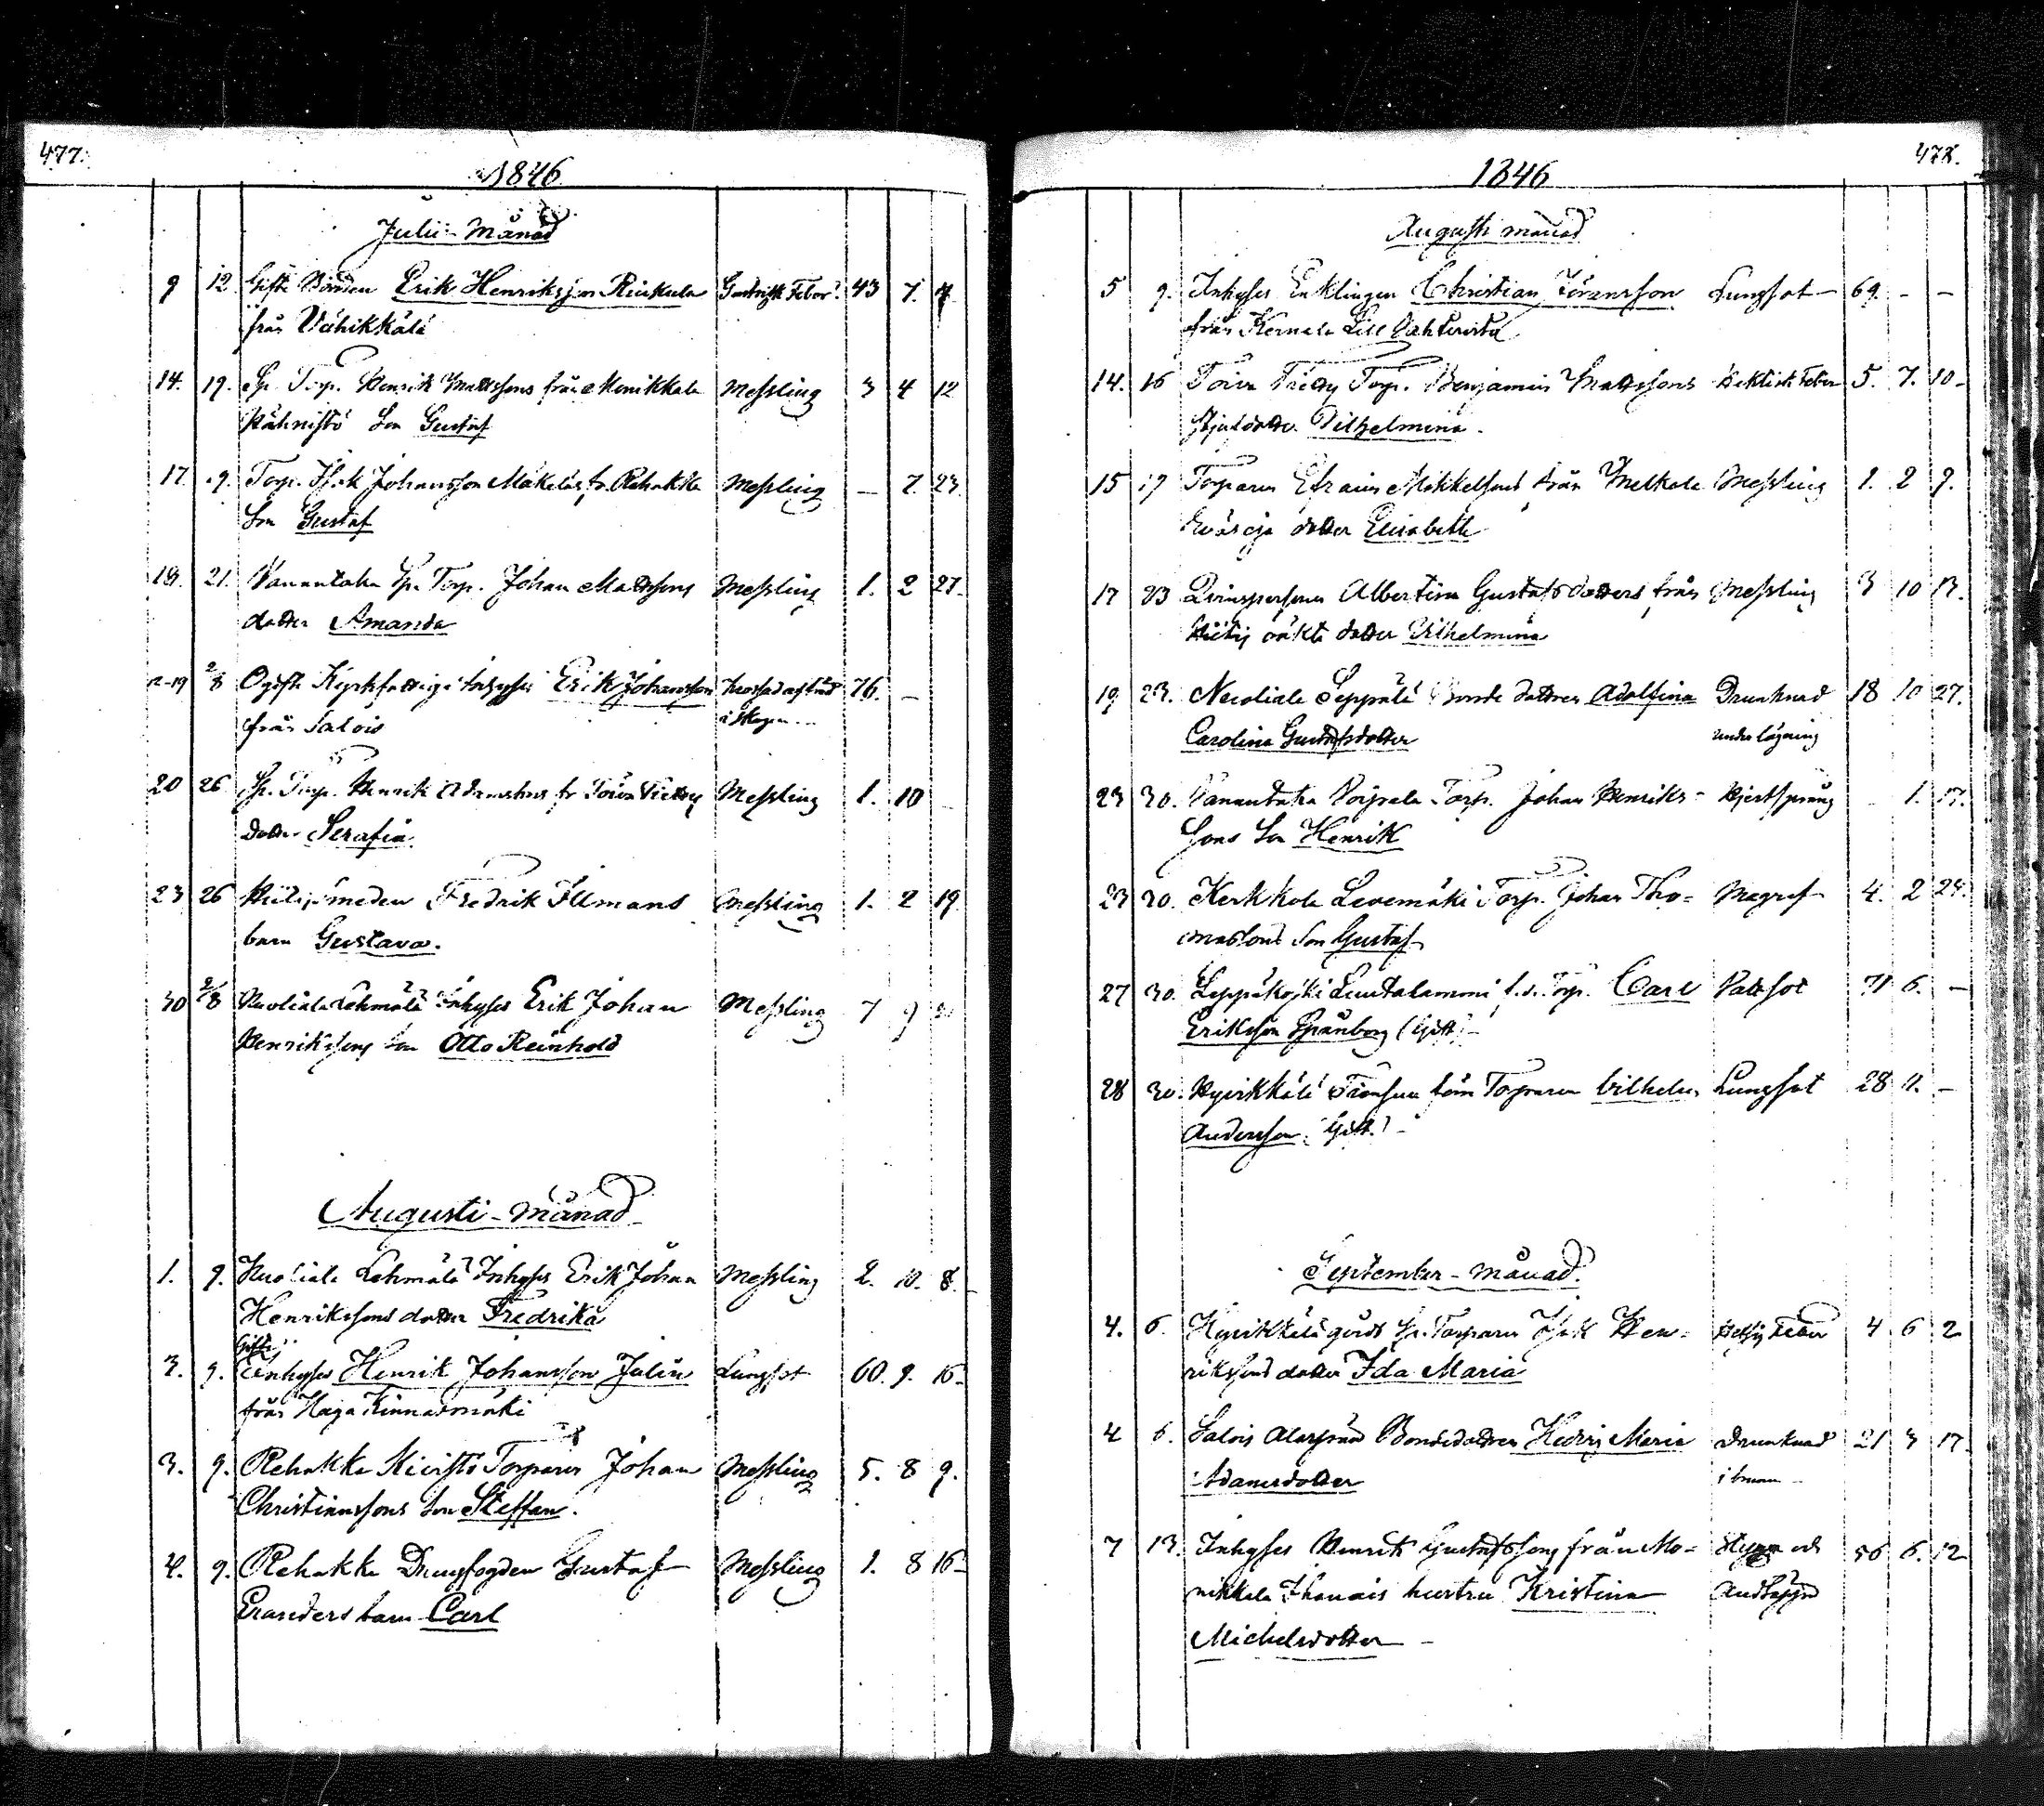 477.
1846
Julii - Månad
9 12 Gifte Bonden Erik Henriksson Rinkula Gastrisk Feber. 43 7. 4
från Vähikkälä
14. 19. Sp. Torp. Henrik Mattssons från Monikkala Messling 3 4 12
Pähnistö Son Gustaf
17. 19. Torp. Isak Johansson Mäkeläs fr. Rehakka Messling — 7. 23.
Son Gustaf
19. 21. Vanantaka Sp. Torp. Johan Mattssons Messling 1. 2 27.
dotter Amanda
19 2/8 Ogifte Kyrkfattige Inhyses Erik Johansson 76. —
från Salois i skogen
20 26 Sp. Torp. Henrik Adamssons fr Toivo Messling 1. 10 —
Dotter Serafia
23 26 smeden Fredrik Illmans Messling 1. 2 19
barn Gustava.
30 2/8 Nuoliala Lehmälä Inhyses Erik Johan Messling 7 9
Henrikssons Son Otto Reinhold
Augusti - Månad
1. 9. Nuoliala Lehmälä Inhyses Erik Johan Messling 2. 10. 8.
Henrikssons dotter Fredrika
Gifte
3. 9. Inhyses Henrik Johansson Julin Lungsot 60. 9. 16.
från Haga Kinnarmäki
3. 9. Rehakka Kivistö Torparen Johan Messling 5. 8 9.
Christianssons Son Steffan.
4. 9. Rehakka Gustaf Messling 1. 8 16
barn Carl
478.
1846
Augusti månad
5 9. Inhyses Enklingen Christian Göransson Lungsot 69. — —
från Kernala Lill
14. 16 Toivo Torp. Benjamin Mattssons Hektisk Feber 5. 7. 10
dotter Vilhelmina.
15 17 Torparen Efraim Mikkelsons från Melkola Messling 1. 2 9.
dotter Elisabeth
17 23 Qvinspersonen Albertina Gustafsdotters från Messling 3 10 13.
oäkta dotter Vilhelmina
19 23. Nuoliala Seppälä Bonde dottren Adolfina Drunknad 18 10 27.
Carolina Gustafsdotter under lögning
23 30. Vanantaka Voipala Torp. Johan Henriks- Hjertsprång 1. 17.
sons Son Henrik
23 30. Kerkkola Levomäki Torp. Johan Tho= Magref 4. 2 24.
massons Son Gustaf
27 30. Leppäkoski Luutalammi f.d. Torp. Carl Vattsot 71 6. —
Eriksson Granberg (Gift)
28 30. Hyvikkälä Torparen Vilhelm Lungsot 28 11. —
Andersson (Gift.)
September - Månad.
4. 6. Hyvikkälä gårds Sp. Torparen Isak Hen- Feber 4 6 2
rikssons dotter Ida Maria
4 6. Salois Alaspää Bondedottren Hedvig Maria Drunknad 21 3 17
Adamsdotter i brunn
7 13. Inhyses Henrik Gustafssons från Mo- och 56 6. 12
nikkala hustru Kristina
Michelsdotter